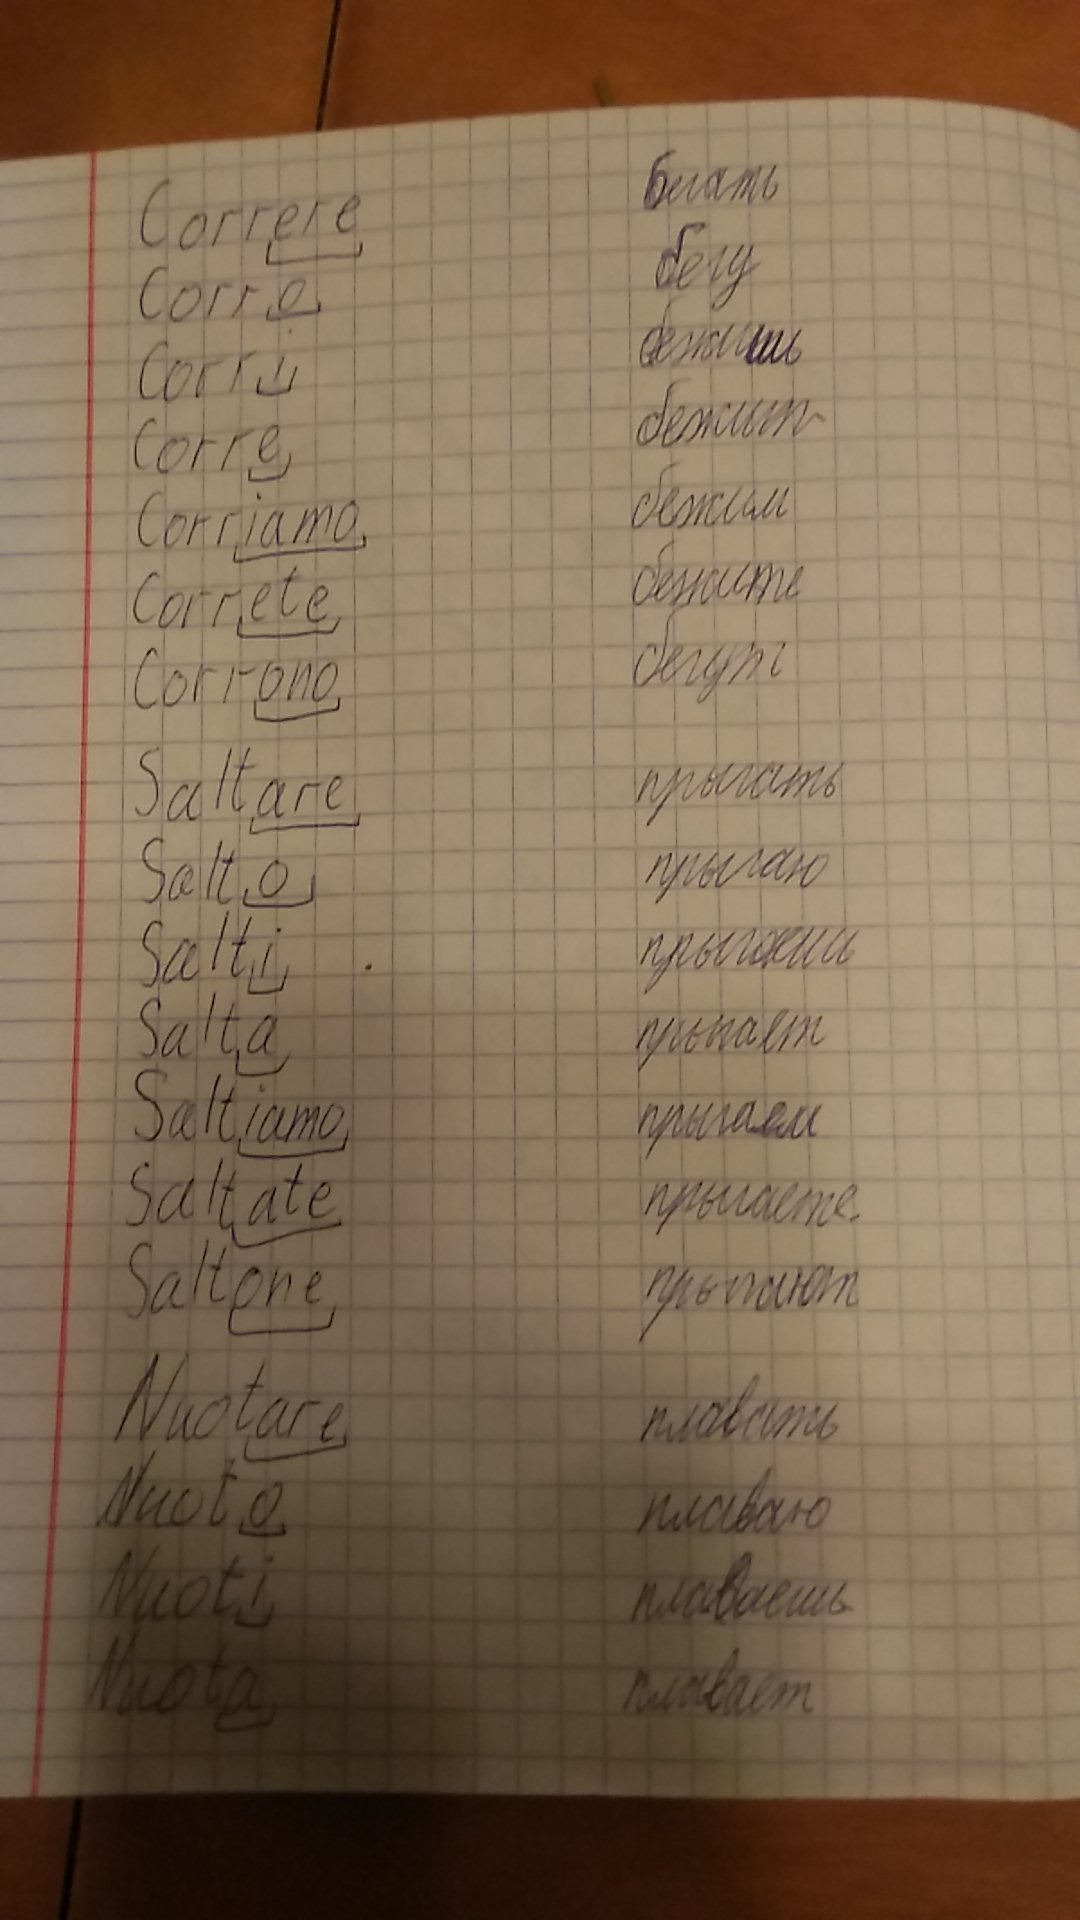 Correre бегать
Corro бегу
Corri бежишь
Corre бежит
Corriamo бежим
Correte бежите
Corrono бегут
Saltare прыгать
Salto прыгаю
Salti прыгаеш
Salta прыгает
Saltiamo прыгаем
Saltate прыгаете
Saltone прыгают
Nuotare плавать
Nuoto плаваю
Nuoti плаваешь
Nuota плавает